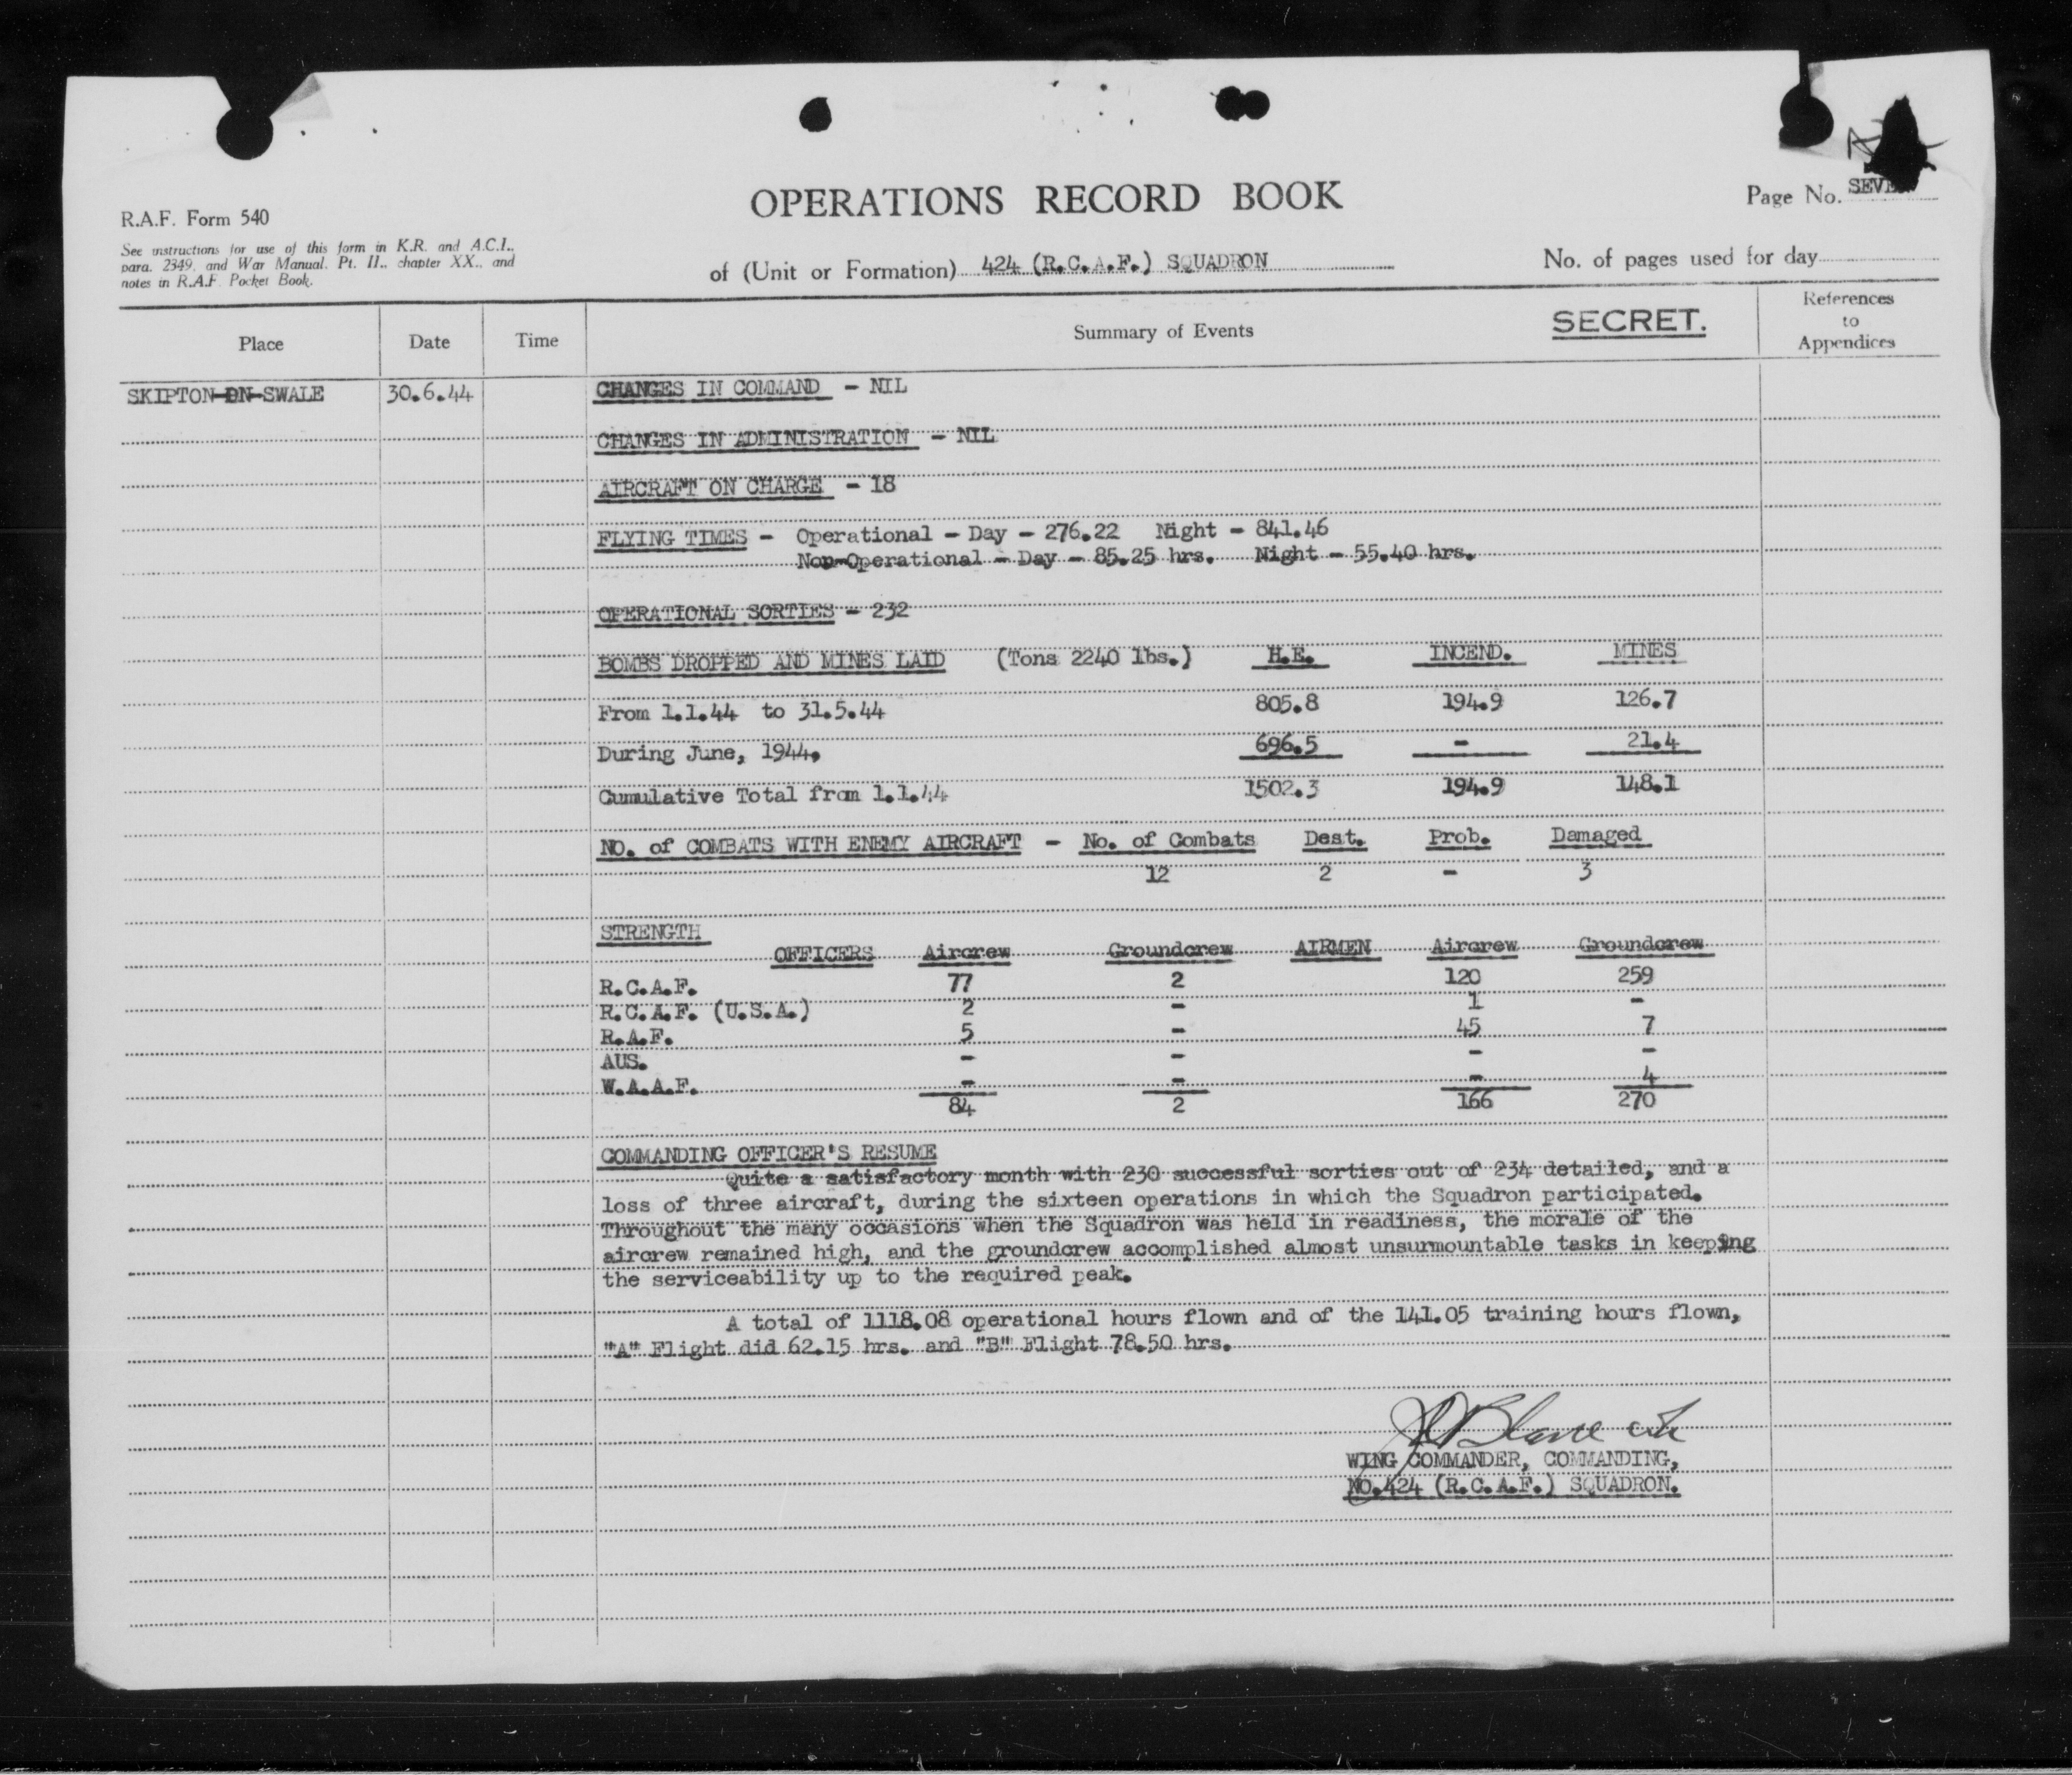 OPERATIONS RECORD BOOK
Page No.
R.A.F. Form 540
See instructions for use of this form in K.R. and A.C.I.,
para. 2349, and War Manual, Pt. II., chapter XX., and
notes in R.A.F. Pocket Book.
of (Unit or Formation) 424 (R.C.A.F.) SQUADRON
No. of pages used for day
Place Date Time Summary of Events SECRET. References to Appendices
SKIPTON-ON-SWALE 30.6.44 CHANGES IN COMMAND - NIL
CHANGES IN ADMINISTRATION - NIL
AIRCRAFT ON CHARGE - 18
FLYING TIMES - Operational - Day - 276.22 Night - 841.46
Non-Operational - Day - 85.25 hrs. Night - 55.40 hrs.
OPERATIONAL SORTIES - 232
BOMBS DROPPED AND MINES LAID (Tons 2240 lbs.) H.E. INCEND. MINES
From 1.1.44 to 31.5.44 805.8 194.9 126.7
During June, 1944. 696.5 - 21.4
Cumulative Total from 1.1.44 1502.3 194.9 148.1
NO. of COMBATS WITH ENEMY AIRCRAFT - No. of Combats Dest. Prob. Damaged
12 2 - 3
STRENGTH
OFFICERS Aircrew Groundcrew AIRMEN Aircrew Groundcrew
R.C.A.F. 77 2 120 259
R.C.A.F. (U.S.A.) 2 - 1 -
R.A.F. 5 - 45 7
AUS. - - - -
W.A.A.F. - - - 4
84 2 166 270
COMMANDING OFFICER'S RESUME
Quite a satisfactory month with 230 successful sorties out of 234 detailed, and a
loss of three aircraft, during the sixteen operations in which the Squadron participated.
Throughout the many occasions when the Squadron was held in readiness, the morale of the
aircrew remained high, and the groundcrew accomplished almost unsurmountable tasks in keeping
the serviceability up to the required peak.
A total of 1118.08 operational hours flown and of the 141.05 training hours flown,
"A" Flight did 62.15 hrs. and "B" Flight 78.50 hrs.
WING COMMANDER, COMMANDING,
NO.424 (R.C.A.F.) SQUADRON.